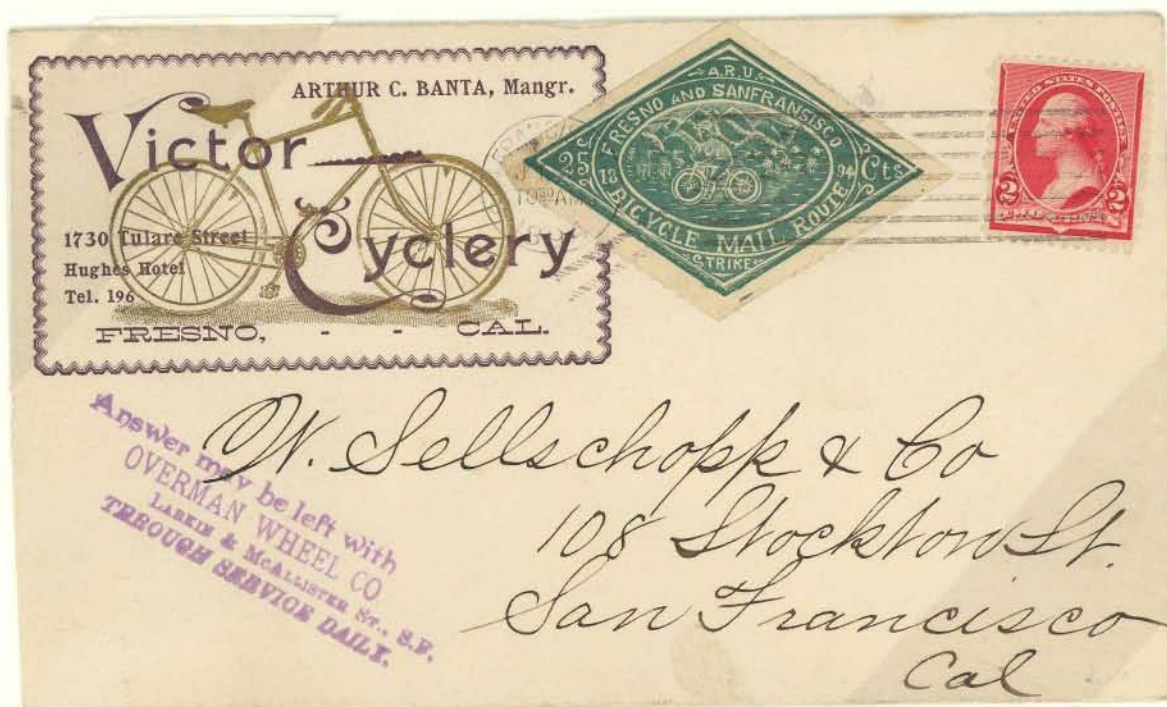 ARTHUR C. BANTA, Mangr.
Victor
Cyclery
1730 Tulare Street
Hughes Hotel
Tel. 196
FRESNO, - - CAL.
A.R.U.
FRESNO AND SANFRANSISCO
25 Cts
18 94
BICYCLE MAIL ROUTE
STRIKE
10 30 AM
UNITED STATES POSTAGE
2 2
Answer may be left with
OVERMAN WHEEL CO
LARKIN & MCALLISTER ST., S.F.
THROUGH SERVICE DAILY.
W. Sellschopp & Co
108 Stockton St.
San Francisco
Cal